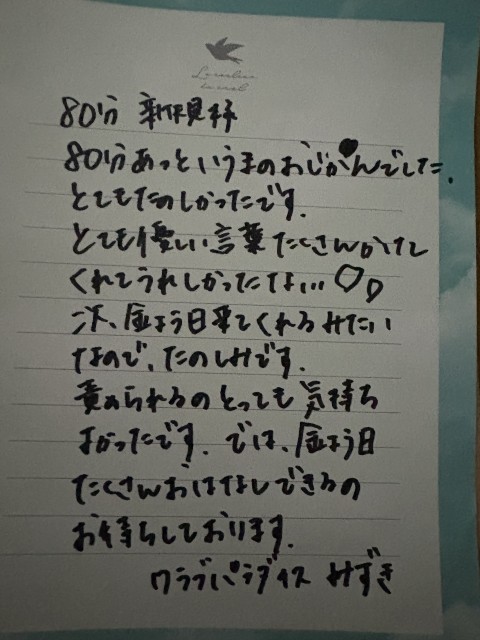 80分 新規様
80分あっというまのおじかんでした.
とてもたのしかったです.
とても優しい言葉たくさんかけて
くれてうれしかったなぁ…
次、金よう日来てくれるみたい
なので、たのしみです.
責められるのとっても気持ち
よかったです. では、金よう日
たくさんおはなしできるの
お待ちしております.
クラブパラダイス みずき